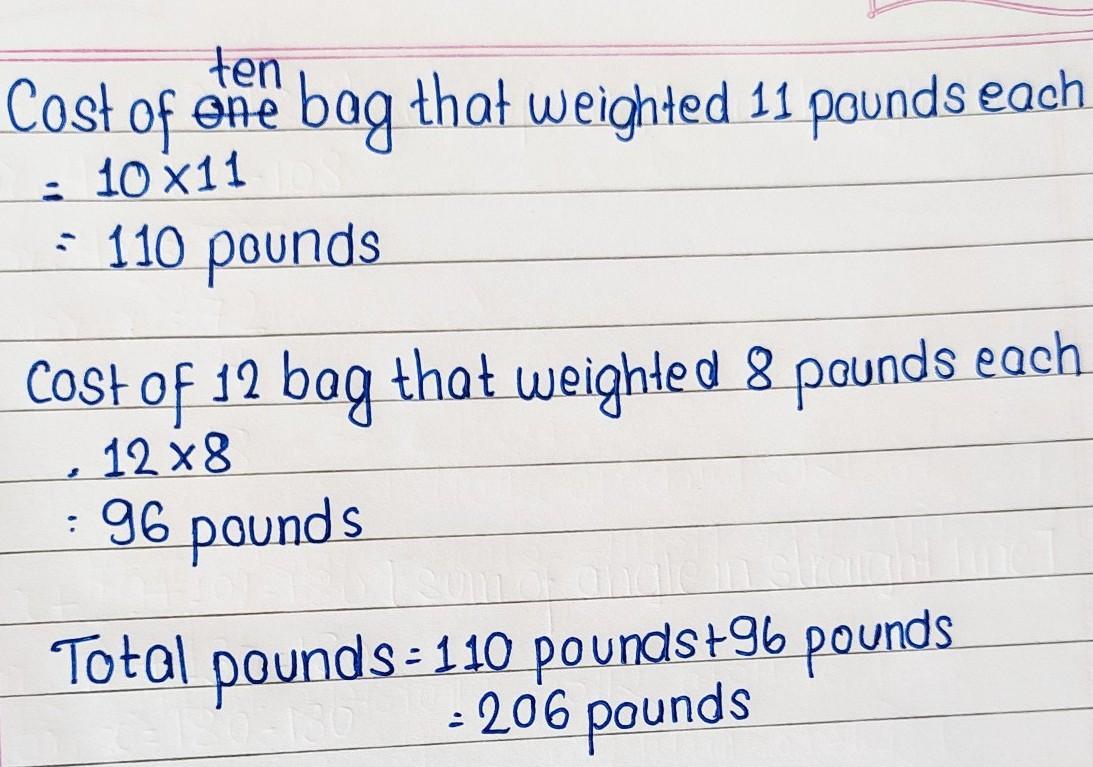 Cost of one ten bag that weighted 11 pounds each
= 10 x 11
= 110 pounds
Cost of 12 bag that weighted 8 pounds each
. 12 x 8
: 96 pounds
Total pounds = 110 pounds + 96 pounds
= 206 pounds